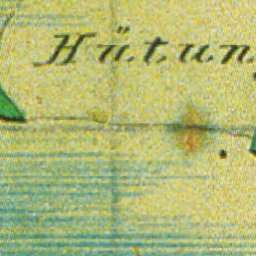 Hütun